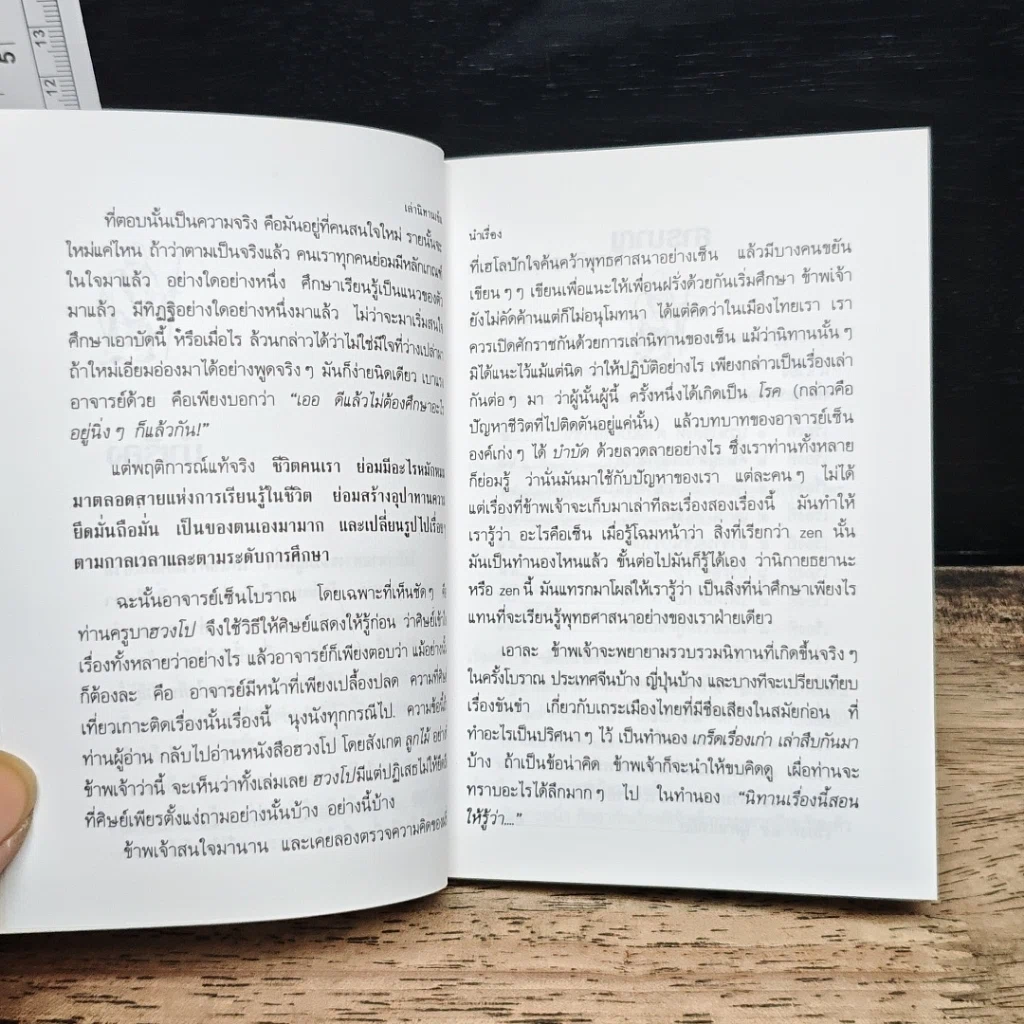 เล่านิทานเซ็น
ที่ตอบนั้นเป็นความจริง คือมันอยู่ที่คนสนใจใหม่ รายนั้นจะ
ใหม่แค่ไหน ถ้าว่าตามเป็นจริงแล้ว คนเราทุกคนย่อมมีหลักเกณฑ์
ในใจมาแล้ว อย่างใดอย่างหนึ่ง ศึกษาเรียนรู้เป็นแนวของตัว
มาแล้ว มีทิฏฐิอย่างใดอย่างหนึ่งมาแล้ว ไม่ว่าจะมาเริ่มสนใจ
ศึกษาเอาบัดนี้ หรือเมื่อไร ล้วนกล่าวได้ว่าไม่ใช่มีใจที่ว่างเปล่ามา
ถ้าใหม่เอี่ยมอ่องมาได้อย่างพูดจริงๆ มันก็ง่ายนิดเดียว เบาแรง
อาจารย์ด้วย คือเพียงบอกว่า “เออ ดีแล้วไม่ต้องศึกษาอะไร
อยู่นิ่งๆ ก็แล้วกัน!”
แต่พฤติการณ์แท้จริง ชีวิตคนเรา ย่อมมีอะไรหมักหมม
มาตลอดสายแห่งการเรียนรู้ในชีวิต ย่อมสร้างอุปาทานความ
ยึดมั่นถือมั่น เป็นของตนเองมามาก และเปลี่ยนรูปไปเรื่อยๆ
ตามกาลเวลาและตามระดับการศึกษา
ฉะนั้นอาจารย์เซ็นโบราณ โดยเฉพาะที่เห็นชัดๆ คือ
ท่านครูบาฮวงโป จึงใช้วิธีให้ศิษย์แสดงให้รู้ก่อน ว่าศิษย์เข้าใจ
เรื่องทั้งหลายว่าอย่างไร แล้วอาจารย์ก็เพียงตอบว่า แม้อย่างนั้น
ก็ต้องละ คือ อาจารย์มีหน้าที่เพียงเปลื้องปลด ความที่ศิษย์
เที่ยวเกาะติดเรื่องนั้นเรื่องนี้ นุงนังทุกกรณีไป. ความข้อนี้
ท่านผู้อ่าน กลับไปอ่านหนังสือฮวงโป โดยสังเกต ลูกไม้ อย่างที่
ข้าพเจ้าว่านี้ จะเห็นว่าทั้งเล่มเลย ฮวงโปมีแต่ปฏิเสธไม่ให้ยึด
ที่ศิษย์เพียรตั้งแง่ถามอย่างนั้นบ้าง อย่างนี้บ้าง
ข้าพเจ้าสนใจมานาน และเคยลองตรวจความคิดของ
นำเรื่อง
ที่เฮโลปักใจค้นคว้าพุทธศาสนาอย่างเซ็น แล้วมีบางคนขยัน
เขียนๆๆ เขียนเพื่อแนะให้เพื่อนฝรั่งด้วยกันเริ่มศึกษา ข้าพเจ้า
ยังไม่คัดค้านแต่ก็ไม่อนุโมทนา ได้แต่คิดว่าในเมืองไทยเรา เรา
ควรเปิดศักราชกันด้วยการเล่านิทานของเซ็น แม้ว่านิทานนั้นๆ
มิได้แนะไว้แม้แต่นิด ว่าให้ปฏิบัติอย่างไร เพียงกล่าวเป็นเรื่องเล่า
กันต่อๆ มา ว่าผู้นั้นผู้นี้ ครั้งหนึ่งได้เกิดเป็น โรค (กล่าวคือ
ปัญหาชีวิตที่ไปติดตันอยู่แค่นั้น) แล้วบทบาทของอาจารย์เซ็น
องค์เก่งๆ ได้ บำบัด ด้วยลวดลายอย่างไร ซึ่งเราท่านทั้งหลาย
ก็ย่อมรู้ ว่านั่นมันมาใช้กับปัญหาของเรา แต่ละคนๆ ไม่ได้
แต่เรื่องที่ข้าพเจ้าจะเก็บมาเล่าทีละเรื่องสองเรื่องนี้ มันทำให้
เรารู้ว่า อะไรคือเซ็น เมื่อรู้โฉมหน้าว่า สิ่งที่เรียกว่า zen นั้น
มันเป็นทำนองไหนแล้ว ขั้นต่อไปมันก็รู้ได้เอง ว่านิกายธยานะ
หรือ zen นี้ มันแทรกมาโผล่ให้เรารู้ว่า เป็นสิ่งที่น่าศึกษาเพียงไร
แทนที่จะเรียนรู้พุทธศาสนาอย่างของเราฝ่ายเดียว
เอาละ ข้าพเจ้าจะพยายามรวบรวมนิทานที่เกิดขึ้นจริงๆ
ในครั้งโบราณ ประเทศจีนบ้าง ญี่ปุ่นบ้าง และบางทีจะเปรียบเทียบ
เรื่องขันขำ เกี่ยวกับเถระเมืองไทยที่มีชื่อเสียงในสมัยก่อน ที่
ทำอะไรเป็นปริศนาๆ ไว้ เป็นทำนอง เกร็ดเรื่องเก่า เล่าสืบกันมา
บ้าง ถ้าเป็นข้อน่าคิด ข้าพเจ้าก็จะนำให้ขบคิดดู เผื่อท่านจะ
ทราบอะไรได้ลึกมากๆ ไป ในทำนอง “นิทานเรื่องนี้สอน
ให้รู้ว่า....”